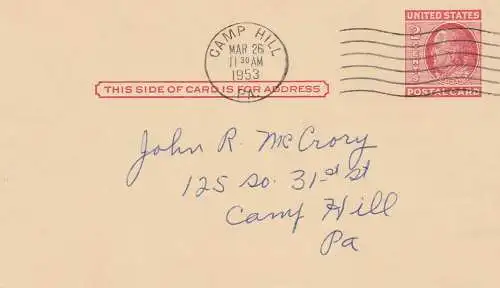 CAMP HILL
MAR 26
11 30 AM
1953
PA.
UNITED STATES
2
CENTS
POSTAL CARD
THIS SIDE OF CARD IS FOR ADDRESS
John R. McCrory
125 So. 31st st
Camp Hill
Pa